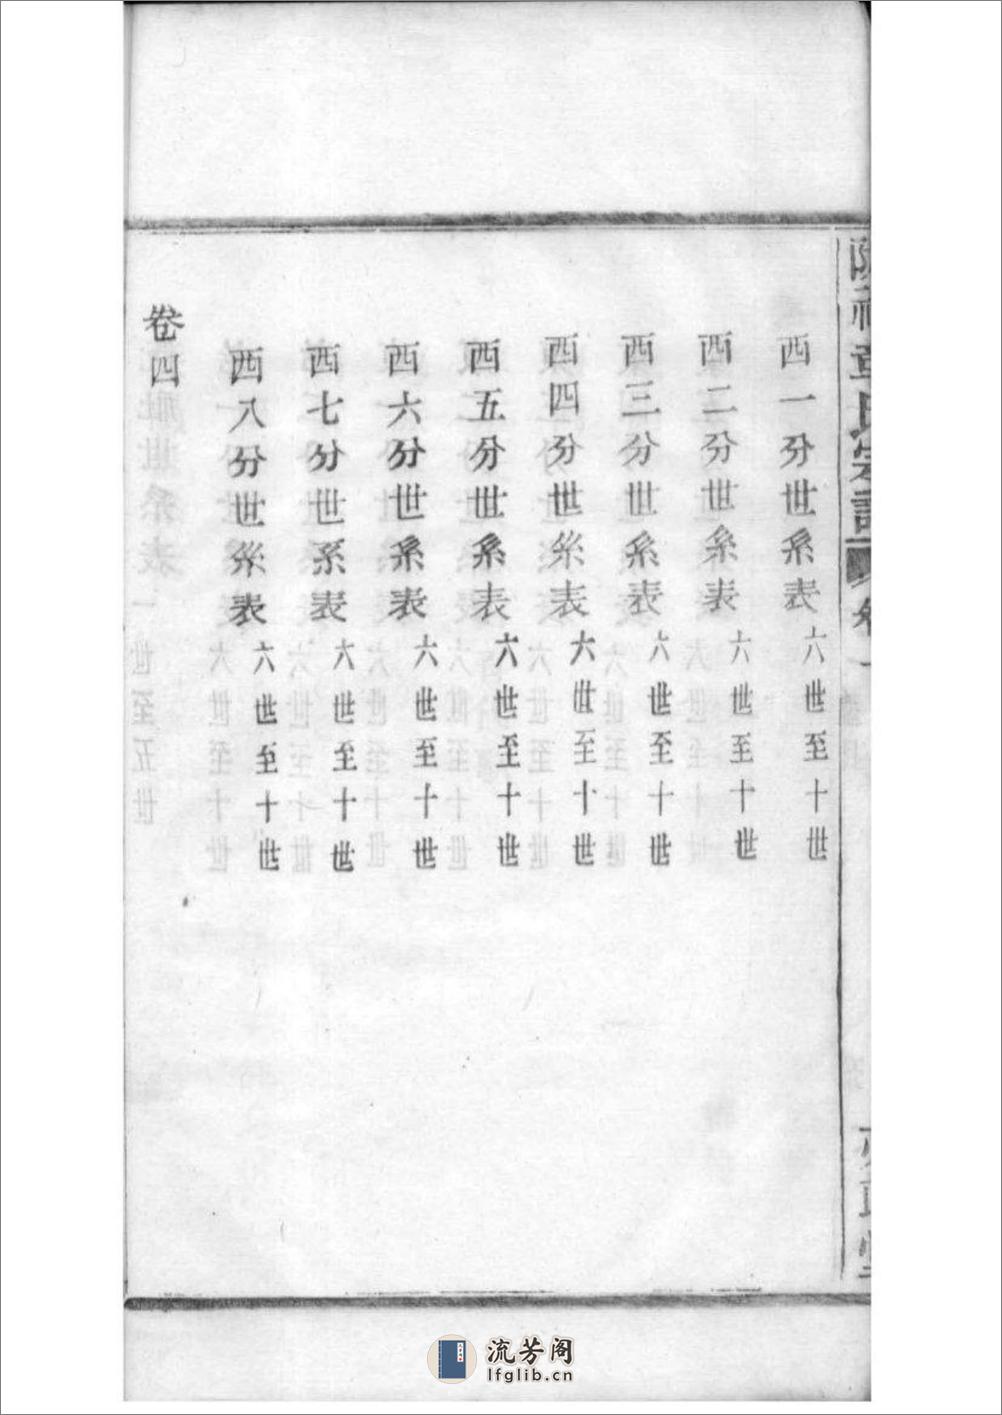 西一分世系表 六世至十世
西二分世系表 六世至十世
西三分世系表 六世至十世
西四分世系表 六世至十世
西五分世系表 六世至十世
西六分世系表 六世至十世
西七分世系表 六世至十世
西八分世系表 六世至十世
卷四
流芳阁
lfglib.cn